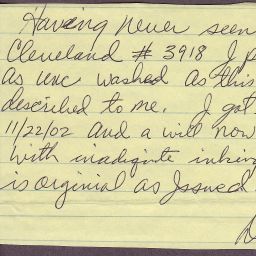 Having never seen
Cleveland # 3918 I p
as unc washed as this
described to me. I got
11/22/02 and a will now
with inadiqute inking
is orginial as Issued